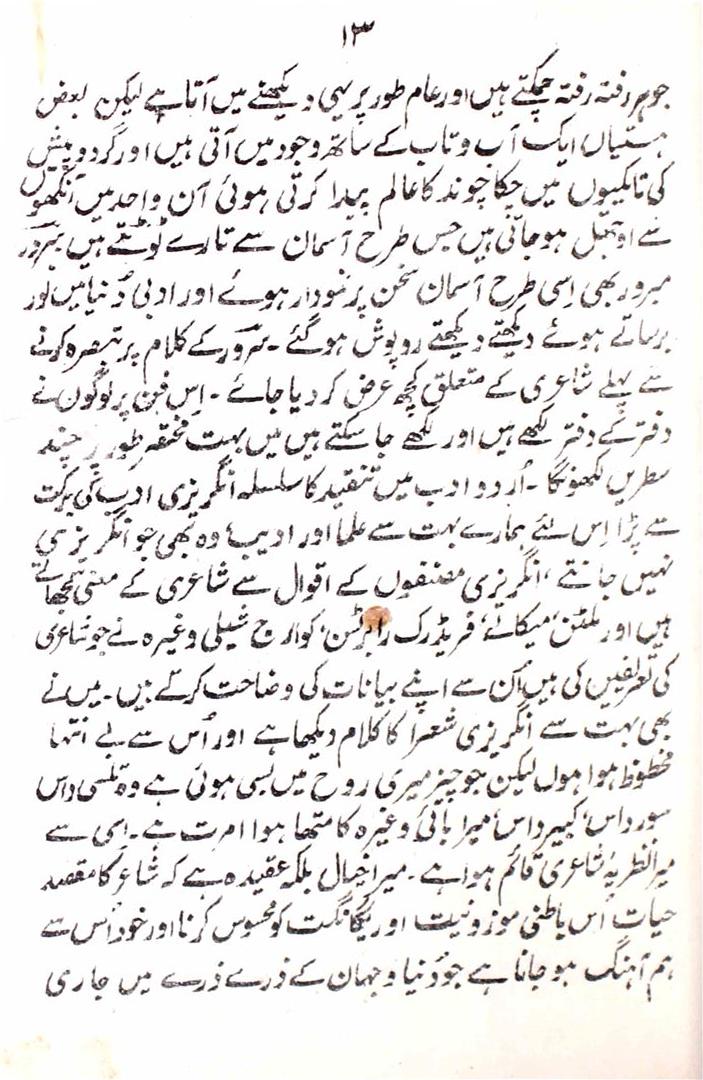 ۱۳
جوہر رفتہ رفتہ چمکتے ہیں اور عام طور پر یہی دیکھنے میں آتا ہے لیکن بعض
ہستیاں ایک آب و تاب کے ساتھ وجود میں آتی ہیں اور گرد و پیش
کی تاریکیوں میں چکا چوند کا عالم پیدا کرتی ہوئی آن واحد میں آنکھوں
سے اوجھل ہو جاتی ہیں جس طرح آسمان سے تارے ٹوٹتے ہیں سرور
مبرور بھی اِسی طرح آسمان سخن پر نمودار ہوئے اور ادبی دُنیا میں نور
برساتے ہوئے دیکھتے دیکھتے روپوش ہو گئے۔ سرور کے کلام پر تبصرہ کرنے
سے پہلے شاعری کے متعلق کچھ عرض کر دیا جائے۔ اِس فن پر لوگوں نے
دفتر کے دفتر لکھے ہیں اور لکھے جا سکتے ہیں میں بہت مختصر طور پر چند
سطریں لکھونگا۔ اُردو ادب میں تنقید کا سلسلہ انگریزی ادب کی برکت
سے پڑا اِس لئے ہمارے بہت سے علما اور ادیب وہ بھی جو انگریزی
نہیں جانتے، انگریزی مصنفوں کے اقوال سے شاعری کے معنی سمجھاتے
ہیں اور ملٹن، میکالے، فریڈرک رابرٹسن، کوارج شیلی وغیرہ نے جو شاعری
کی تعریفیں کی ہیں اُن سے اپنے بیانات کی وضاحت کرتے ہیں۔ میں نے
بھی بہت سے انگریزی شعرا کا کلام دیکھا ہے اور اُس سے بے انتہا
محظوظ ہوا ہوں لیکن جو چیز میری روح میں بسی ہوئی ہے وہ تلسی داس
سور داس، کبیر داس، میرا بائی وغیرہ کا متھا ہوا امرت ہے۔ اِسی سے
میرا نظریۂ شاعری قائم ہوا ہے۔ میرا خیال بلکہ عقیدہ ہے کہ شاعر کا مقصد
حیات اُس باطنی موزونیت اور یگانگت کو محسوس کرنا اور خود اُس سے
ہم آہنگ ہو جانا ہے جو دُنیا و جہان کے ذرے ذرے میں جاری